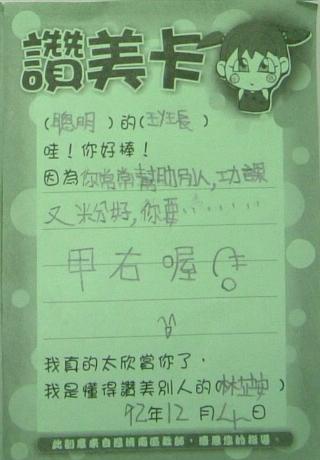 讚美卡
(聰明)的(班長)
哇!你好棒!
因為你常常幫助別人,功課
又粉好,你要‥‥‥
甲右喔!
我真的太欣賞你了,
我是懂得讚美別人的(林芷)
92年12月4日